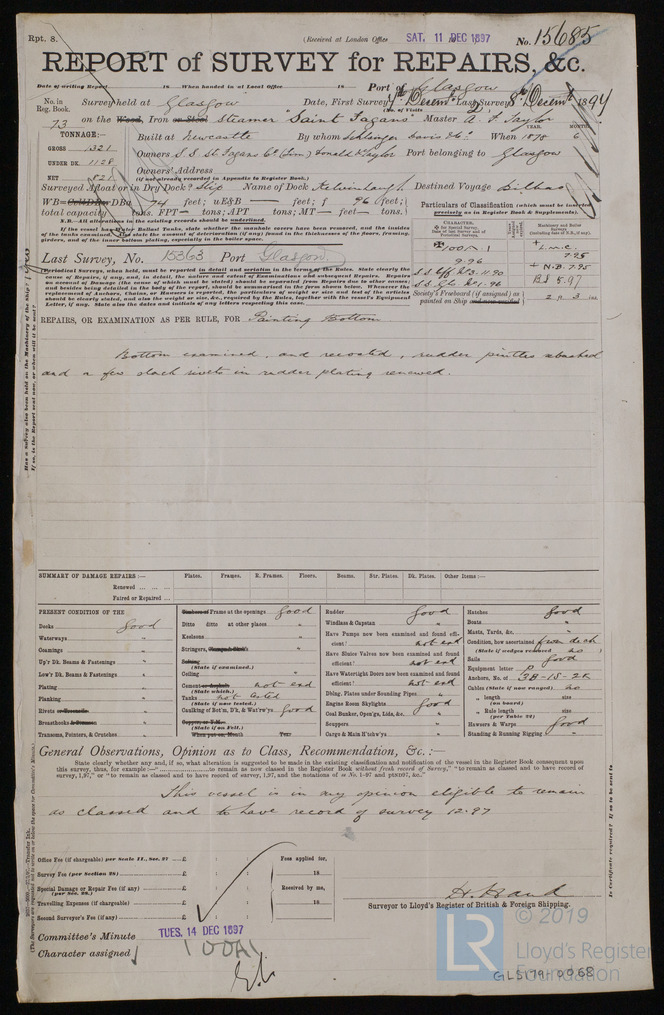 Rpt. 8.
(Received at London Office
SAT. 11 DEC 1897
No. 15685
REPORT of SURVEY for REPAIRS, &c.
Date of writing Report 18 When handed in at Local Office 18 Port of Glasgow
No. in Reg. Book. Survey held at Glasgow Date, First Survey 7th Decem Last Survey 8th Decem 1897
(No. of Visits
73 on the Wood, Iron or Steel Steamer "Saint Fagans" Master A. F. Taylor
TONNAGE:— Built at Newcastle By whom Schlesinger Davis & Co. When 1878 6
YEAR. MONTH
GROSS 1321 Owners S.S. St. Fagans Co (Lim) Donald & Taylor Port belonging to Glasgow
UNDER DK. 1128
NET 821 Owners' Address
(if not already recorded in Appendix to Register Book.)
Surveyed Afloat or in Dry Dock? Slip Name of Dock Kelvinhaugh Destined Voyage Bilbao
WB= CellDBor DBa 74 feet; uE&B — feet; f 96 feet;
total capacity tons. FPT— tons; APT tons; MT— feet— tons.
If the vessel has Water Ballast Tanks, state whether the manhole covers have been removed, and the insides
of the tanks examined, and state the amount of deterioration (if any) found in the thicknesses of the floors, framing,
girders, and of the inner bottom plating, especially in the boiler space.
N.B.—All alterations in the existing records should be underlined.
Particulars of Classification (which must be inserted
precisely as in Register Book & Supplements).
CHARACTER.
Machinery and Boiler Surveys
100A1
9.96
L.M.C. 7.95
N.B. 7.95
BS 5.97
Society's Freeboard (if assigned) as
painted on Ship and now verified
Last Survey, No. 15363 Port Glasgow
Periodical Surveys, when held, must be reported in detail and seriatim in the terms of the Rules. State clearly the
cause of Repairs, if any, and, in detail, the nature and extent of Examinations and subsequent Repairs. Repairs
on account of Damage (the cause of which must be stated) should be separated from Repairs due to other causes;
and besides being detailed in the body of the report, should be summarized in the form shown below. Whenever the
replacement of Anchors, Chains or Hawsers is reported, the particulars of weight or size and test of the articles
should be clearly stated, and also the weight or size, &c., required by the Rules, together with the vessel's Equipment
Letter, if any. State also the dates and initials of any letters respecting this case.
REPAIRS, OR EXAMINATION AS PER RULE, FOR Painting Bottom
Bottom examined, and recoated, rudder pintles rebushed
and a few slack rivets in rudder plating renewed.
SUMMARY OF DAMAGE REPAIRS:— Plates. Frames. R. Frames. Floors. Beams. Str. Plates. Dk. Plates. Other Items:—
Renewed
Faired or Repaired
PRESENT CONDITION OF THE
Decks good
Waterways "
Coamings "
Up'r Dk. Beams & Fastenings "
Low'r Dk. Beams & Fastenings "
Plating "
Planking
Rivets or Treenails "
Breasthooks & Stemson "
Transoms, Pointers, & Crutches "
Timbers of Frame at the openings good
Ditto ditto at other places "
Keelsons "
Stringers, "
Salting
(State if examined.)
Ceiling "
Cement or Asphalt not exd
(State which.)
Tanks not tested
(State if now tested.)
Caulking of Bot'm, D'k, & Wat'rw'ys good
Copper, or Y.M.
(State if on Felt.)
When put on, Month Year
Rudder good
Windlass & Capstan "
Have Pumps now been examined and found efficient? not exd
Have Sluice Valves now been examined and found efficient? not exd
Have Watertight Doors now been examined and found efficient? not exd
Dblng. Plates under Sounding Pipes "
Engine Room Skylights good
Coal Bunker, Open'gs, Lids, &c. "
Scuppers "
Cargo & Main H'tchw'ys "
Hatches good
Boats "
Masts, Yards, &c. "
Condition, how ascertained from deck
(State if wedges removed no )
Sails good
Equipment letter P
Anchors, No. of 3B-1S-2K
Cables (State if now ranged) no
" length size
(on board)
" Rule length size
(per Table 22)
Hawsers & Warps good
Standing & Running Rigging "
General Observations, Opinion as to Class, Recommendation, &c. :—
State clearly whether any and, if so, what alteration is suggested to be made in the existing classification and notification of the vessel in the Register Book consequent upon
this survey, thus, for example:—" to remain as now classed in the Register Book without fresh record of Survey," "to remain as classed and to have record of
survey, 1,97," or "to remain as classed and to have record of survey, 1,97, and the notations of ss No. 1-97 and ptND97, &c."
This vessel is in my opinion eligible to remain
as classed and to have record of survey 12.97
Office Fee (if chargeable) per Scale II., Sec. 27 £ : : Fees applied for,
Survey Fee (per Section 28) £ : : 18
Special Damage or Repair Fee (if any) £ : : Received by me,
(per Sec. 28.)
Travelling Expenses (if chargeable) £ : : 18
Second Surveyor's Fee (if any) £ : :
H. Hand
Surveyor to Lloyd's Register of British & Foreign Shipping.
Committee's Minute TUES. 14 DEC 1897
Character assigned 100A1
© 2019
LR
Lloyd's Register
Foundation
GLS179-0068